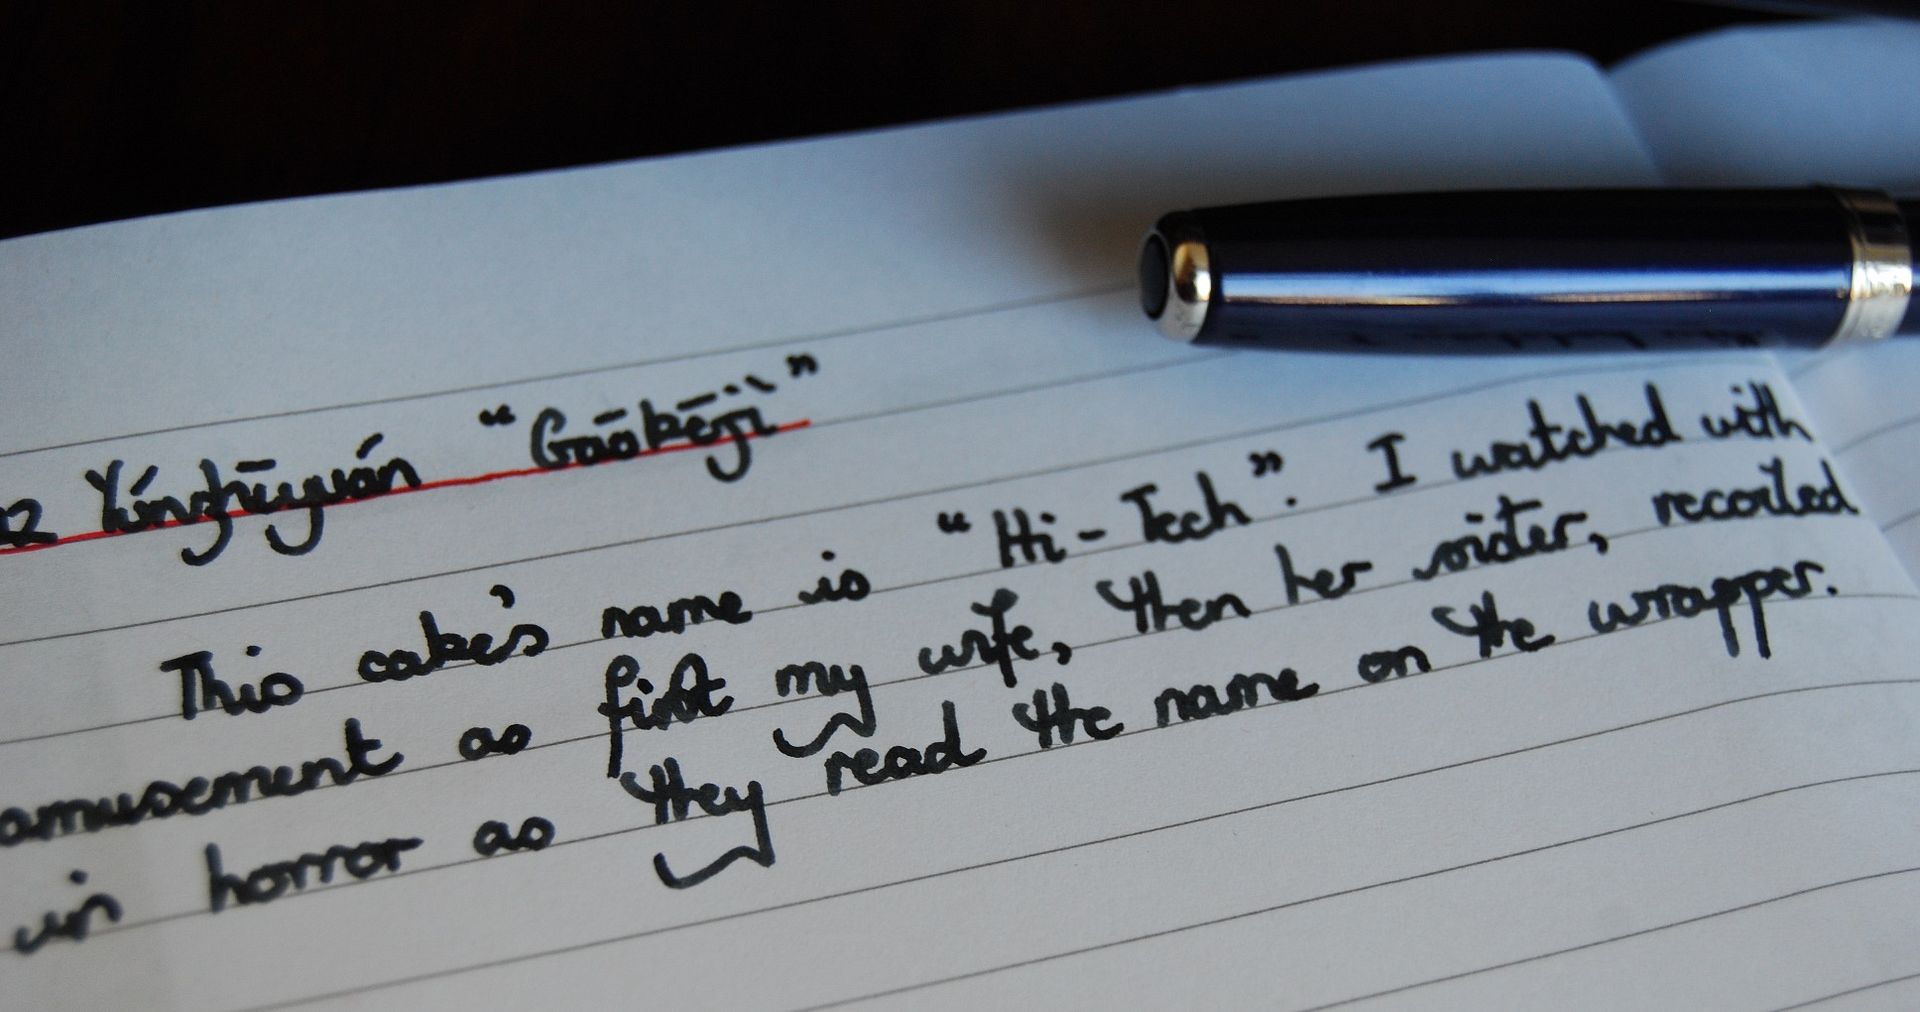 Yínzhūyuán “Gāokējì”
This cake's name is “Hi-Tech”. I watched with
amusement as first my wife, then her sister, recoiled
in horror as they read the name on the wrapper.